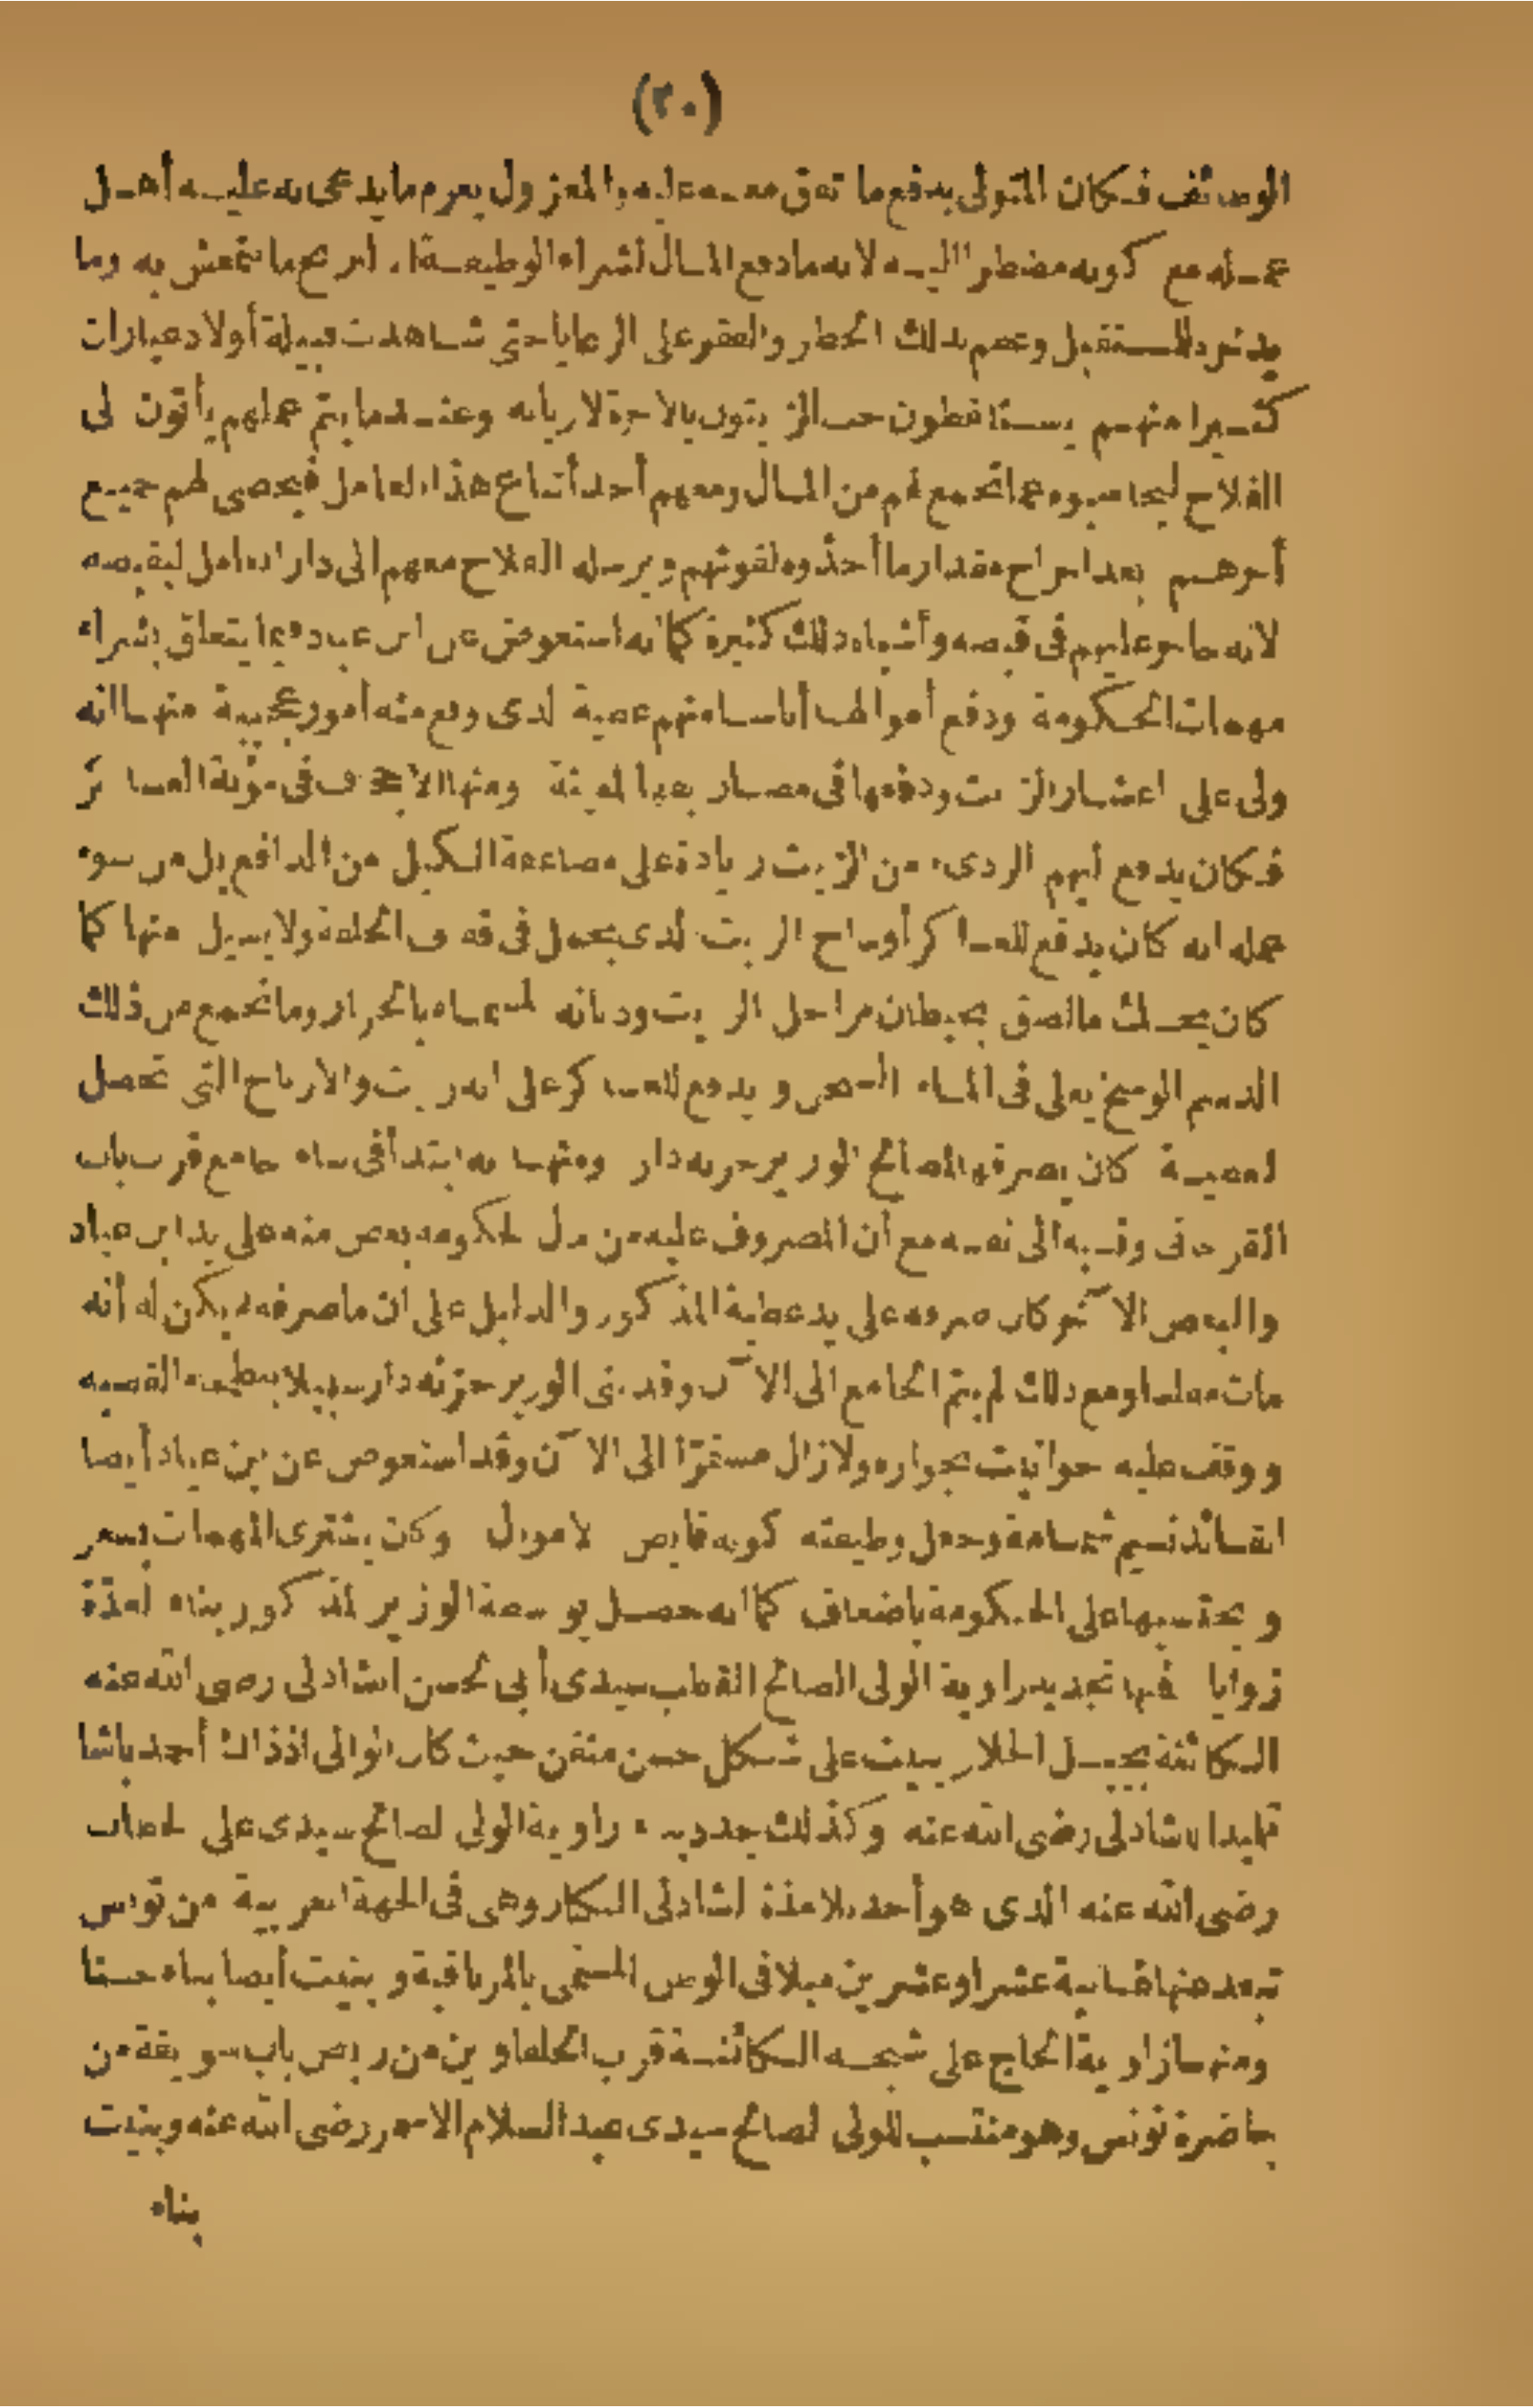 (٢٠)
الوظائف فكان المتولى يدفع ما تفق معه عليه والمعزول يغرم ما يدعى به عليه أهل
عمله مع كونه مضطرا اليه لانه ما دفع المال لشراء الوظيفة الا ليربح ما يتعيش به وما
يدخره للمستقبل وعم بذلك الخطر والفقر على الرعايا حتى شاهدت قبيلة أولاد عيارات
كثيرا منهم يستاقطون حب الزيتون بالاجرة لاربابه وعند ما يتم عملهم يأتون الى
الفلاح ليحاسبوه عما تجمع لهم من المال ومعهم أحد أتباع هذا العامل فيحصى لهم جميع
أجرهم بعد اخراج مقدار ما أخذوه لقوتهم ويرسله الفلاح معهم الى دار العامل ليقبضه
لانه ما جو عليهم فى قبضه وأشباه ذلك كثيرة كما انه استعوض عن ابن عياد فيما يتعلق بشراء
مهمات الحكومة ودفع أموالها أناسا منهم عطية الذى وقع منه أمور عجيبة منها انه
ولى على اعشار الزيت ودفعها فى مصاريفها المعينة ومنها الاجحاف فى مؤنة العساكر
فكان يدفع لهم الردىء من الزيت زيادة على مضاعفة الكيل من الدافع بل من سوء
عمله انه كان يدفع للعساكر أوساخ الزيت الذى يجعل فى قفف الحلفة ولا يسيل منها كما
كان يحك ما لصق بحيطان مراجل الزيت ودنانه المسماه بالجرار وما تجمع من ذلك
الدسم الوسخ يغلى فى الماء السخن ويدفع للعساكر على انه زيت والارباح التى تحصل
لعطية كان يصرفها لمصالح الوزير خزنه دار ومنها انه ابتدأ فى بناء جامع قرب باب
القرجانى ونسبه الى نفسه مع أن المصروف عليه من مال الحكومة بعض منه على يد ابن عياد
والبعض الآخر كان صرفه على يد عطية المذكور والدليل على ان ما صرفه لم يكن له أنه
مات مفلسا ومع ذلك لم يتم الجامع الى الآن وقد بنى الوزير خزنه دار سبيلا ببطحاء القصبه
ووقف عليه حوانيت بجواره ولازال مستمرّا الى الآن وقد استعوض عن بن عياد أيضا
القائد نسيم شمامة وجعل وظيفته كونه قابض الاموال وكان يشترى المهمات بسعر
ويحتسبها على الحكومة باضعاف كما انه حصل بواسطة الوزير المذكور بناء لعدّة
زوايا فمنها تجديد زاوية الولى الصالح القطب سيدى أبى الحسن الشاذلى رضى الله عنه
الكائنة بجبل الجلاز بنيت على شكل حسن متقن حيث كان الوالى اذذاك أحمد باشا
تلميذا للشاذلى رضى الله عنه وكذلك جدد بناء زاوية الولى الصالح سيدى على الحطاب
رضى الله عنه الذى هو أحد تلامذة الشاذلى الكبار وهى فى الجهة الغربية من تونس
تبعد عنها ثمانية عشر أو عشرين ميلا فى الوطن المسمى بالمرناقية وبنيت أيضا بناء حسنا
ومنها زاوية الحاج على شيحه الكائنة قرب الحلفاوين من ربض باب سويقة من
حاضرة تونس وهو منتسب للولى الصالح سيدى عبد السلام الاسمر رضى الله عنه وبنيت
بناء